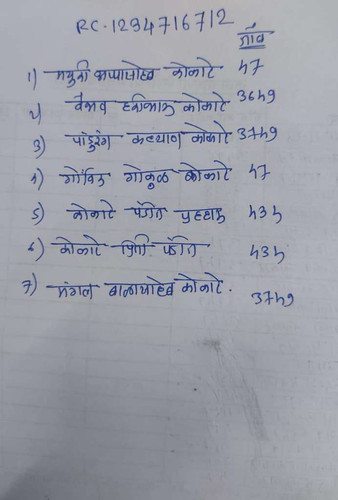 RC-1294716712
गाव
1) मयुरी अप्पासाहेब कोकाटे 47
2) वैभव हरीभाऊ कोकाटे 3649
3) पांडुरंग कल्याण कोकाटे 3749
4) गोविंद गोकुळ कोकाटे 47
5) कोकाटे पंडीत प्रल्हाद 434
6) कोकाटे पंडीत 434
7) मंगल बाळासाहेब कोकाटे. 3749